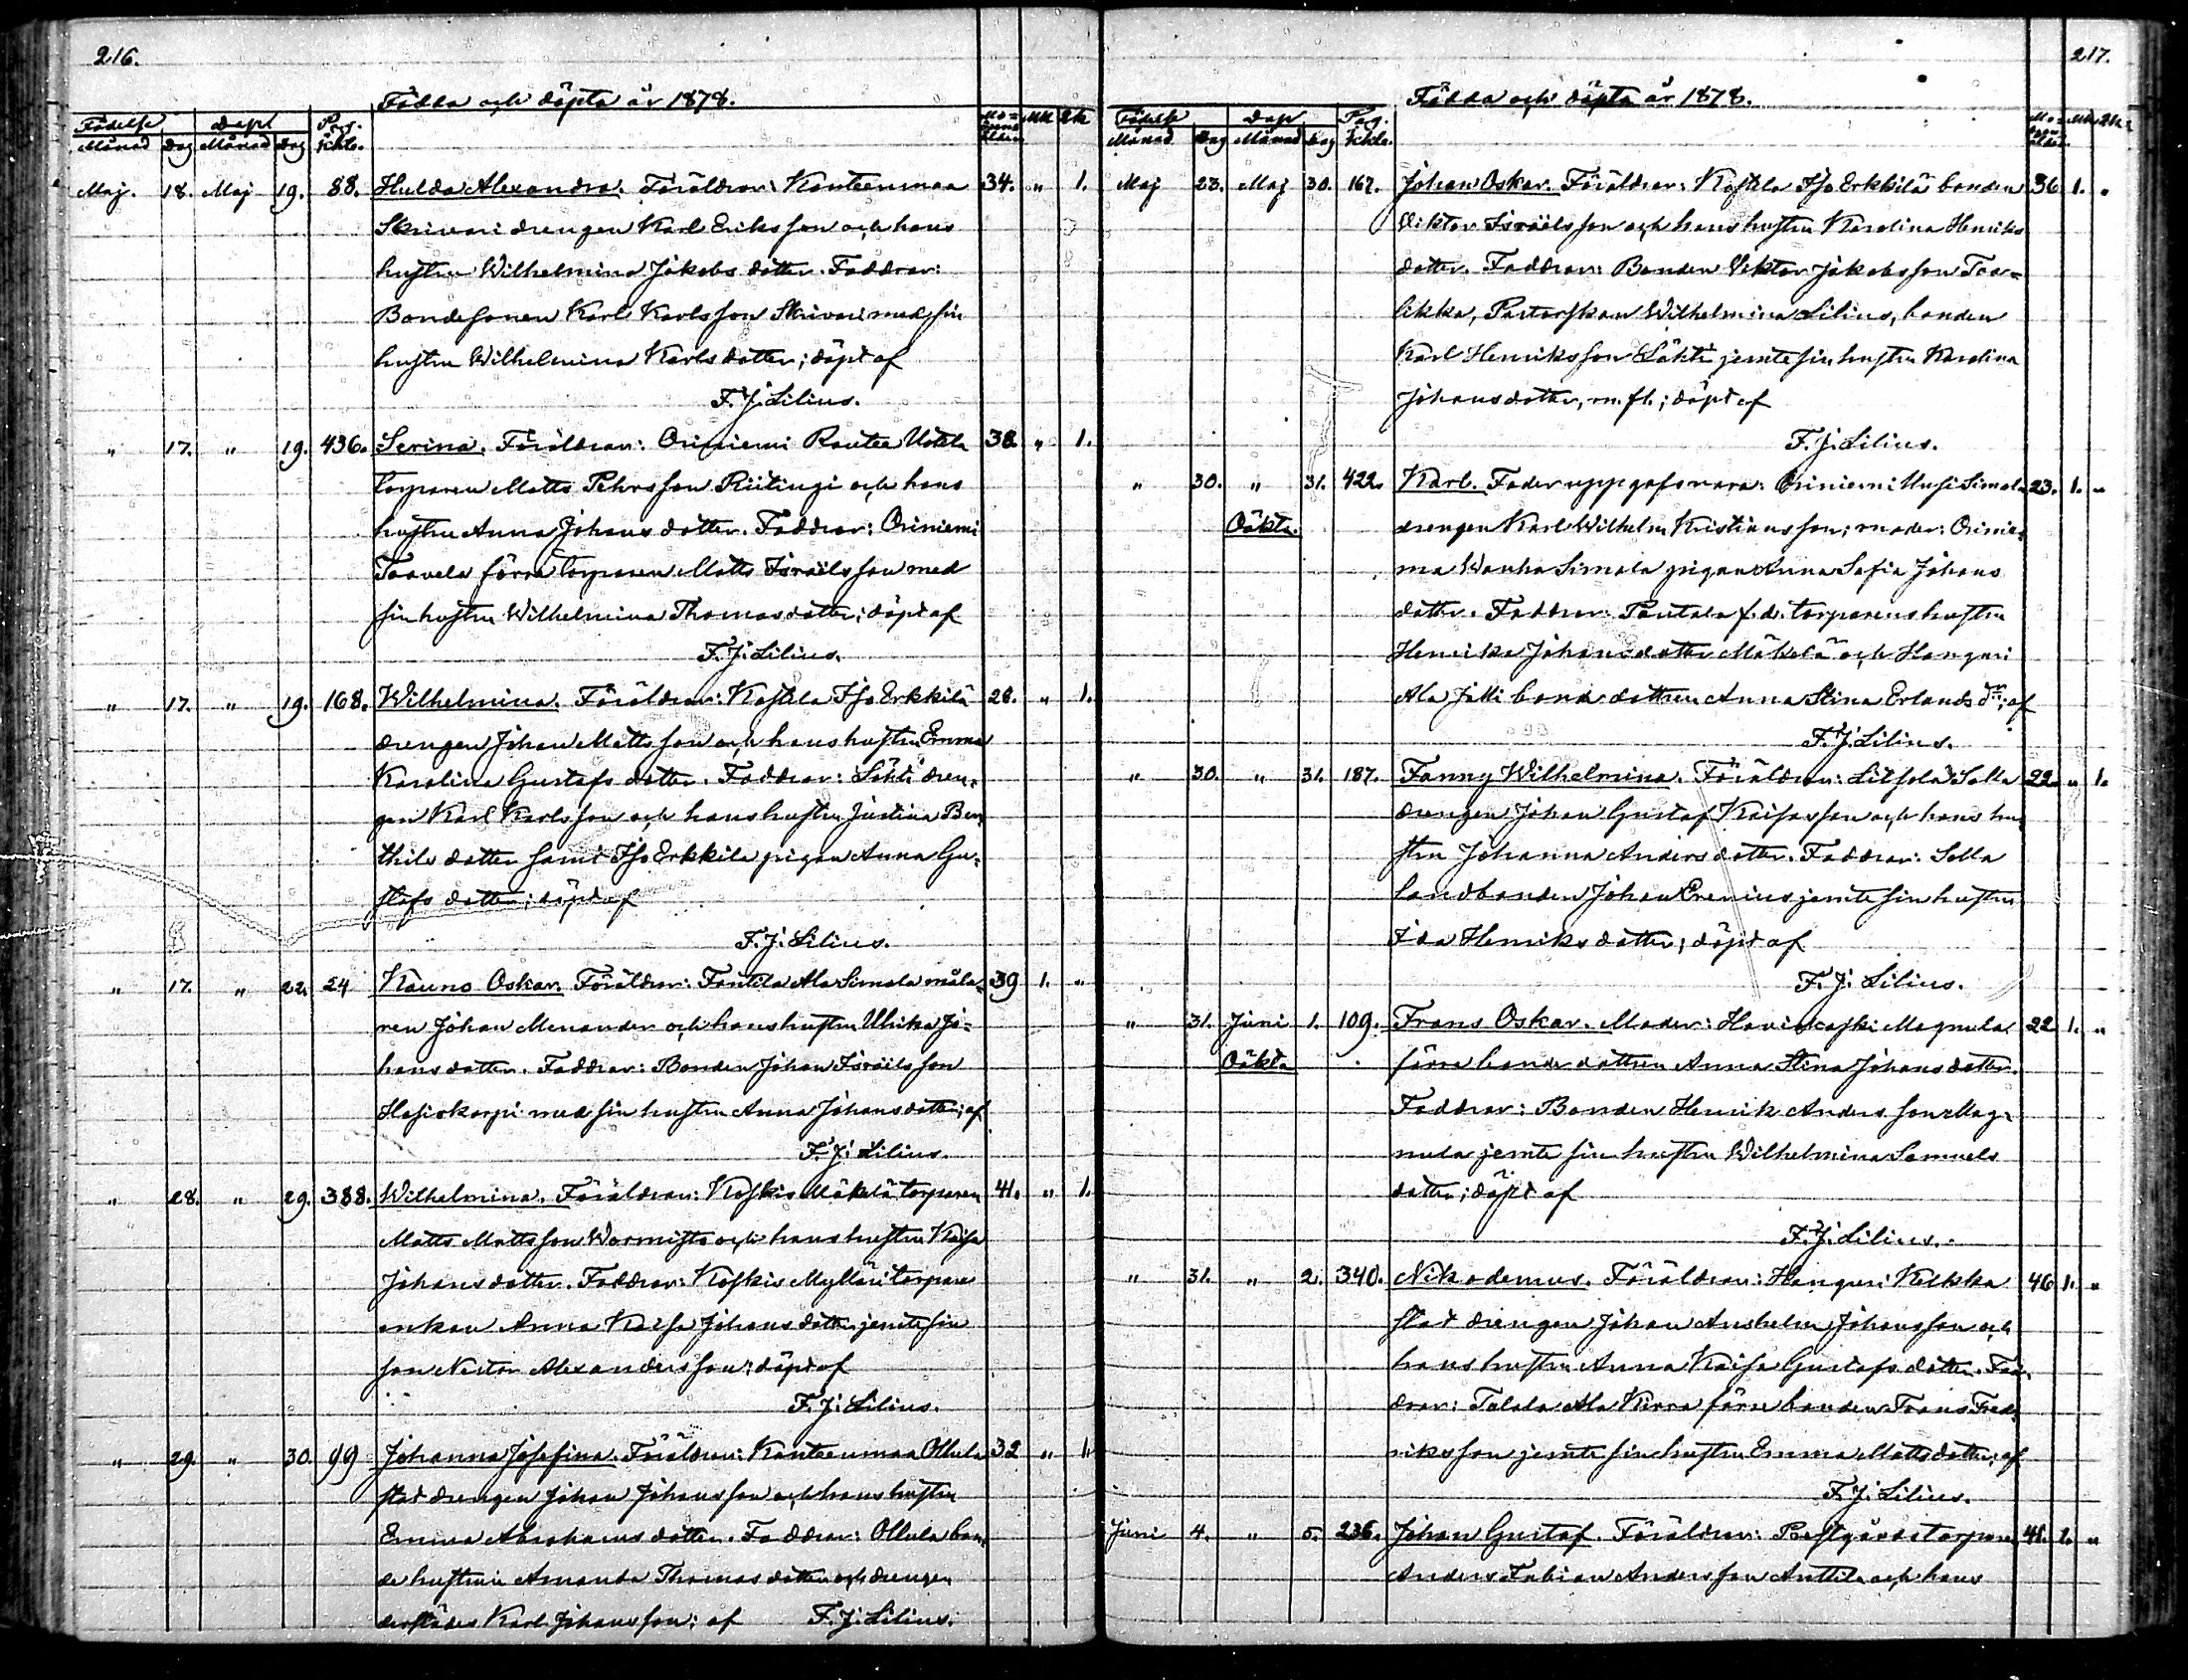 216.
Födda och döpta år 1878.
Födelse Dop Pag. Mo= Mk Qk
Månad Dag Månad Dag Schts. derns ålder
Maj. 18. Maj 19. 88. Hulda Alexandra. Föräldrar: Kanteenmaa 34. " 1.
Skrivari drengen Karl Eriksson och hans
hustru Wilhelmina Jakobsdotter. Faddrar:
Bondesonen Karl Karlsson Skrivari med sin
hustru Wilhelmina Karlsdotter; döpt af
F. J. Lilius.
" 17. " 19. 436. Serina. Föräldrar: Oriniemi Rautee Uotila 38. " 1.
torparen Matts Pehrsson Riitingi och hans
hustru Anna Johansdotter. Faddrar: Oriniemi
Taavela förra torparen Matts Israëlsson med
sin hustru Wilhelmina Thomasdotter; döpt af
F. J. Lilius.
" 17. " 19. 168. Wilhelmina. Föräldrar: Kostila Iso Erkkilä 28. " 1.
drengen Johan Mattsson och hans hustru Emma
Karolina Gustafsdotter. Faddrar: Läkti dren=
gen Karl Karlsson och hans hustru Justina Ben
thilsdotter samt Iso Erkkilä pigan Anna Gu=
stafsdotter; döpt af
F. J. Lilius.
" 17. " 22. 24 Kauno Oskar. Föräldrar: Tantila Ala Simola måla= 39 1. "
ren Johan Menander och hans hustru Ulrika Jo=
hansdotter. Faddrar: Bonden Johan Israëlsson
Hasiokorpi med sin hustru Anna Johansdotter; af
F. J. Lilius.
" 28. " 29. 388. Wilhelmina. Föräldrar: Koskis Mäkelä torparen 41. " 1.
Matts Mattsson Warmisto och hans hustru Kaisa
Johansdotter. Faddrar: Koskis Mylläri torpare
enkan Anna Kaisa Johansdotter jemte sin
son Nestor Alexandersson; döpt af
F. J. Lilius.
" 29. " 30. 99 Johanna Josefina. Föräldrar: Kanteenmaa Ollula 32 " 1.
statdrengen Johan Johansson och hans hustru
Emma Abrahamsdotter. Faddrar: Ollula bon
de hustrun Amanda Thomasdotter och drengen
derstädes Karl Johansson; af F. J. Lilius.
217.
Födda och döpta år 1878.
Födelse Dop Pag. Mo= Mk. Qk.
Månad Dag Månad Dag Schts. derns ålder
Maj 23. Maj 30. 167. Johan Oskar. Föräldrar: Kostila Iso Erkkilä bonden 36 1. "
Viktor Israëlsson och hans hustru Karolina Henriks
dotter. Faddrar: Bonden Viktor Jakobsson Taa=
likka, Pastorskan Wilhelmina Lilius, bonden
Karl Henriksson Läkti jemte sin hustru Karolina
Johansdotter, m. fl.; döpt af
F. J. Lilius.
" 30. " 31. 422. Karl. Fader uppgafs vara: Oriniemi Uusi Simola 23. 1. "
Oäkta. drengen Karl Wilhelm Kristiansson; moder: Orinie=
ma Wanha Simola pigan Anna Sofia Johans
dotter. Faddrar: Pantala f.d. torparens hustru
Henrika Johansdotter Mäkelä och Hanguri
Ala Jätti bondedottren Anna Stina Erlandsdr; af
F. J. Lilius.
" 30. " 31. 187. Fanny Wilhelmina. Föräldrar: Liesola Salla 22. " 1.
drengen Johan Gustaf Kaisasson och hans hu=
stru Johanna Andersdotter. Faddrar: Salla
landbonden Johan Erenius jemte sin hustru
Ida Henriksdotter; döpt af
F. J. Lilius.
" 31. Juni 1. 109. Frans Oskar. Moder: Haviokoski Magnula 22 1. "
Oäkta förra bondedottren Anna Stina Johansdotter.
Faddrar: Bonden Henrik Andersson Mag=
nula jemte sin hustru Wilhelmina Samuels
dotter; döpt af
F. J. Lilius.
" 31. " 2. 340. Nikodemus. Föräldrar: Hanguri Keikka 46 1. "
statdrengen Johan Anshelm Johansson och
hans hustru Anna Kaisa Gustafsdotter. Fad=
drar: Talala Ala Kirra förre bonden Frans Fred=
riksson jemte sin hustru Emma Mattsdotter; af
F. J. Lilius.
Juni 4. " 5. 236. Johan Gustaf. Föräldrar: Prestgårdstorparen 41. 1. "
Anders Fabian Andersson Anttila och hans